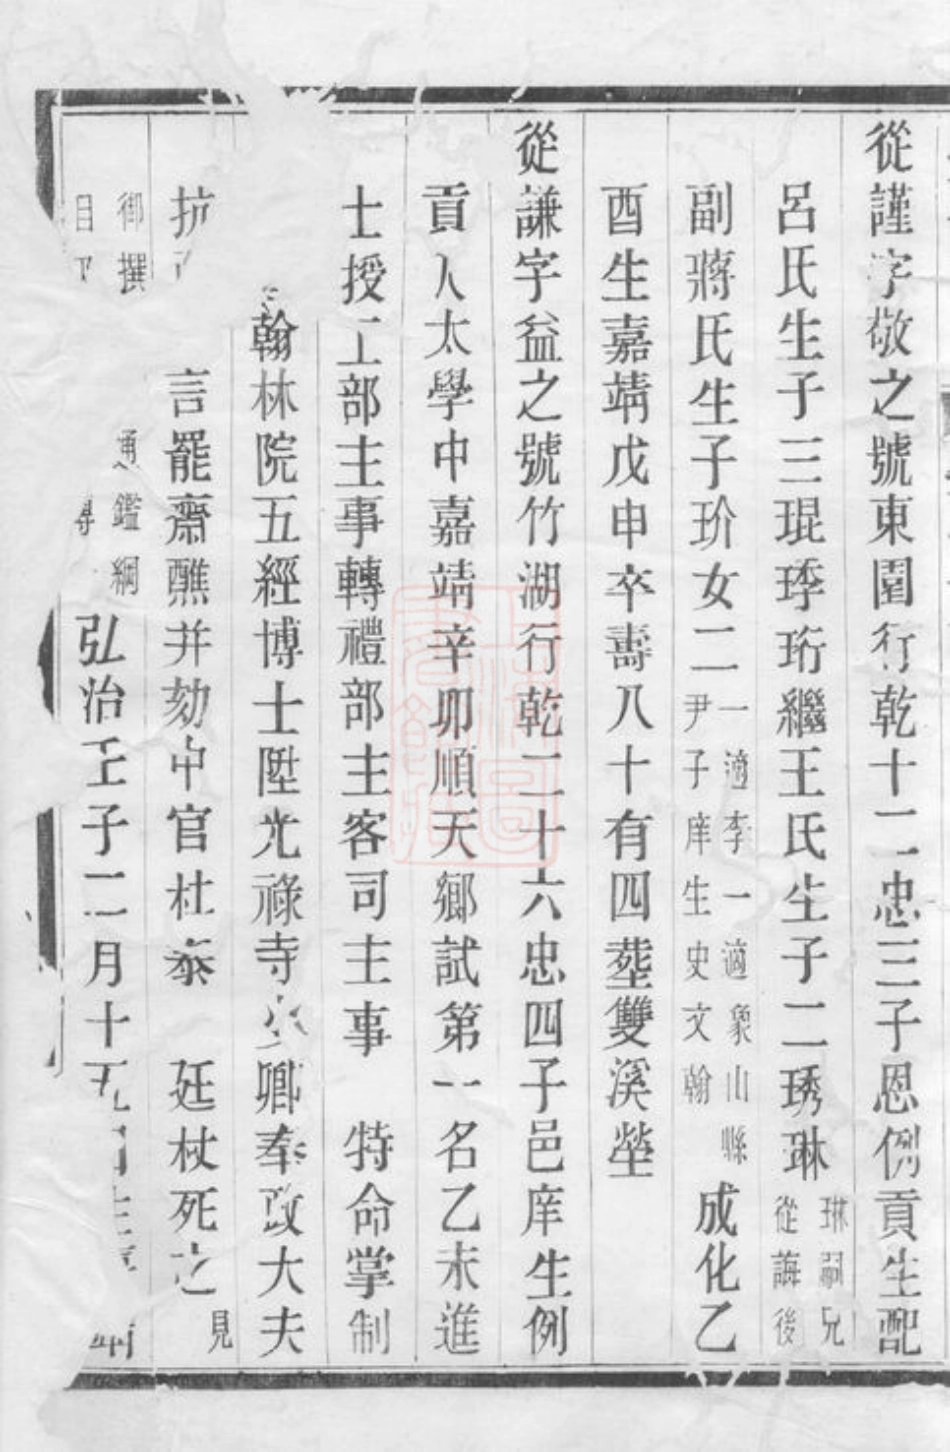 從謹字敬之號東園行乾十二忠三子恩例貢生配
呂氏生子三琨琇珩繼王氏生子二琇琳琳嗣兄從誨後
副蔣氏生子玠女二一適李一適象山縣尹子庠生史文翰成化乙
酉生嘉靖戊申卒壽八十有四塟雙溪塋
從謙字益之號竹湖行乾二十六忠四子邑庠生例
貢入太學中嘉靖辛卯順天鄉試第一名乙未進
士授工部主事轉禮部主客司主事 特命掌制
翰林院五經博士陞光祿寺少卿奉政大夫
抗言罷齋醮并劾中官杜泰 廷杖死之見
御撰通鑑綱目弘治壬子二月十五